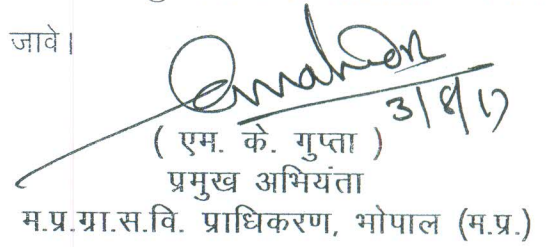 जावे।
3/8/17
( एम. के. गुप्ता )
प्रमुख अभियंता
म.प्र.ग्रा.स.वि. प्राधिकरण, भोपाल (म.प्र.)